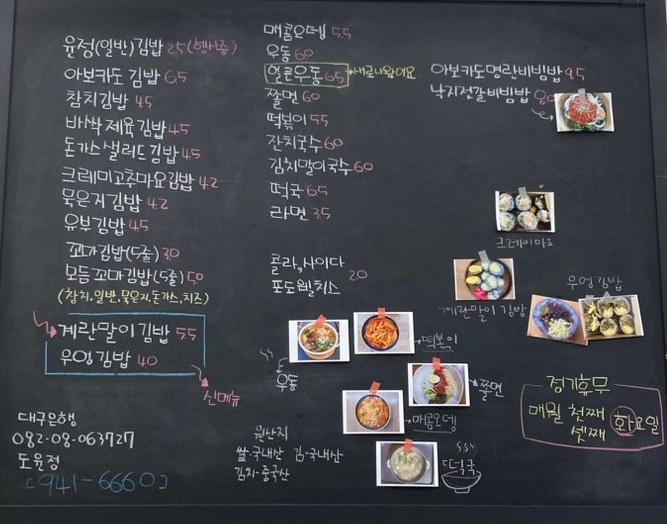 유정(일반)김밥 2.5 (행사중)
아보카도 김밥 6.5
참치김밥 4.5
바싹제육김밥 4.5
돈가스샐러드김밥 4.5
크레미고추마요김밥 4.2
묵은지김밥 4.2
유부김밥 4.5
꼬마김밥(5줄) 3.0
모듬꼬마김밥(5줄) 5.0
(참치,일반,묵은지,돈가스,치즈)
계란말이김밥 5.5
우엉김밥 4.0
신메뉴
대구은행
082-08-063727
도윤정
[941-6660]
매콤오뎅 5.5
우동 6.0
얼큰우동 6.5 새로나왔어요
쫄면 6.0
떡볶이 5.5
잔치국수 6.0
김치말이국수 6.0
떡국 6.5
라면 3.5
콜라,사이다
포도웰치스 2.0
우동
떡볶이
쫄면
매콤오뎅
떡국
원산지
쌀-국내산 김-국내산
김치-중국산
아보카도명란비빔밥 9.5
낙지젓갈비빔밥 8.0
크레미마요
계란말이 김밥
우엉김밥
정기휴무
매월 첫째 화요일
셋째